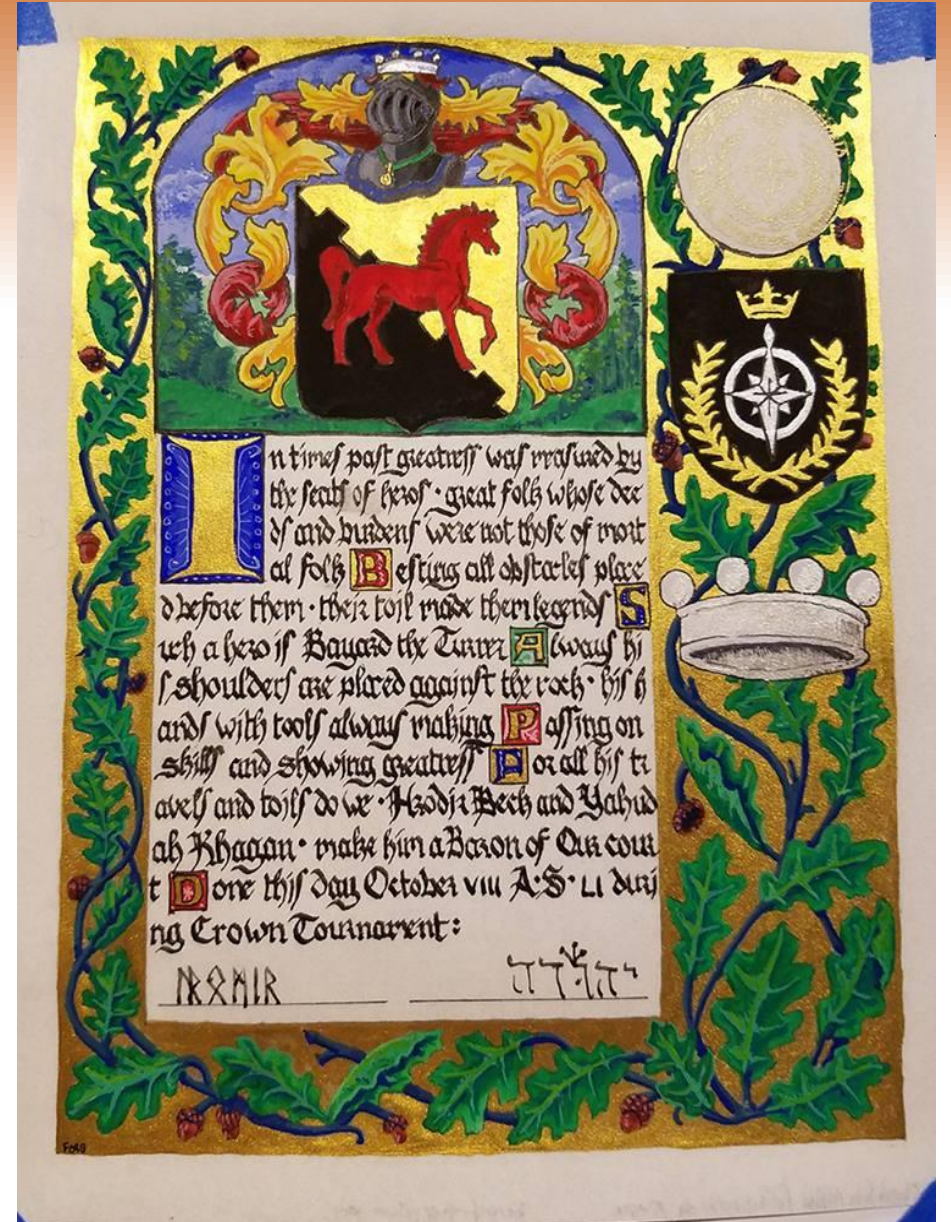 In times past greatness was measured by
the feats of heros · great folk whose dee
ds and burdens were not those of mort
al folk Besting all obstacles place
d before them · their toil made them legends S
uch a hero is Bayard the Turner Always hi
s shoulders are placed against the rock · his h
ands with tools always making Passing on
skills and showing greatness For all his tr
avels and toils do we · Hrodir Bech and Yahud
ah Khagan · make him a Baron of Our cour
t Done this day October viii A·S· LI duri
ng Crown Tournament:
יהודה